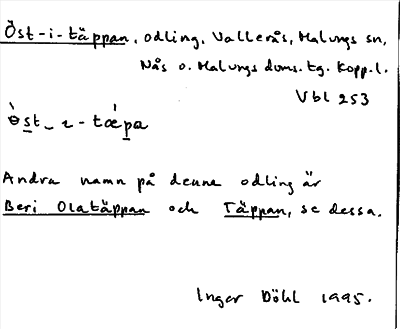 Öst-i-täppan, odling, Vallerås, Malungs sn,
Nås o. Malungs doms. tg. Kopp. l.
Vbl 253
Andra namn på denna odling är
Beri Olatäppan och Täppan, se dessa.
Inger Döhl 1995.